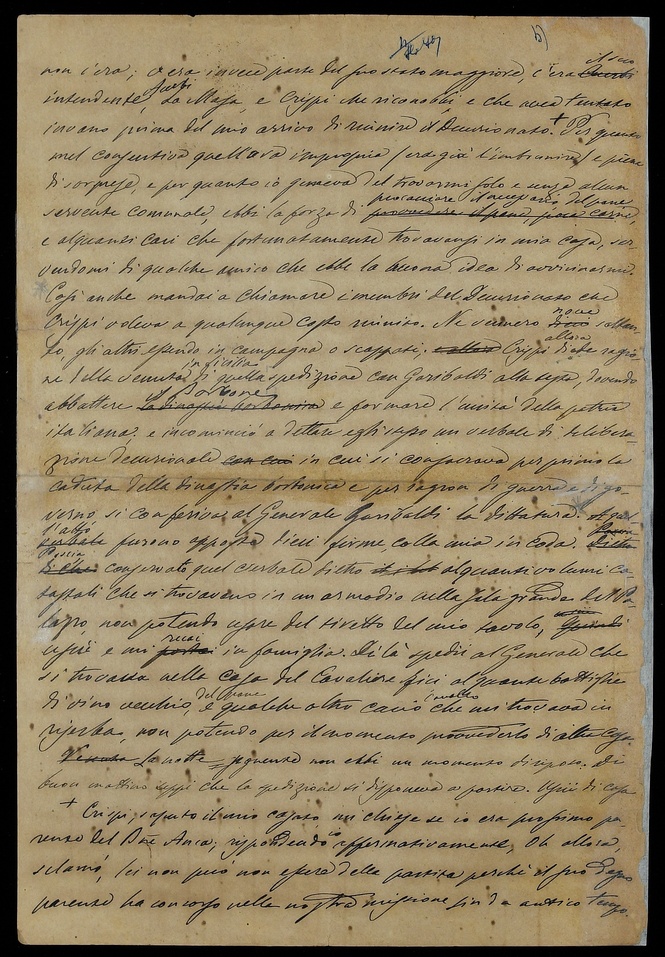 b)
il suo
non c'era; v'era invece parte del suo stato maggiore, c'era
intendente, La Masa, e Crispi che riconobbi, e che avea tentato
invano prima del mio arrivo di riunire il Decurionato. + Per quanto
nel consentiva quell'ora impropria (era già l'imbrunire) e piena
di sorprese, e per quanto io gemeva del trovarmi solo e senza alcun
procacciare il necessario del pane
servente comunale, ebbi la forza di provvedere il pane, poca carne,
e alquanti caci che fortunatamente trovavansi in mia casa, ser-
vendomi di qualche amico che ebbe la buona idea di avvicinarmi.
Così anche mandai a chiamare i membri del Decurionato che
nove
Crispi voleva a qualunque costo riunito. Ne vennero dieci soltan-
allora
to, gli altri essendo in campagna o scappati. Crispi diede ragio-
in Sicilia
ne della venuta di quella spedizione con Garibaldi alla testa, dovendo
Borbone
abbattere la dinastia borbonica e formare l'unità della patria
italiana; e incominciò a dettare egli stesso un verbale di delibera-
zione decurionale con cui in cui si consacrava per primo la
caduta della dinastia borbonica e per ragion di guerra e di go-
verno si conferiva al Generale Garibaldi la dittatura. A quel
l'atto
verbale furono apposte dieci firme, colla mia in coda. Dietro
Poscia
di che conservato quel verbale dietro alquanti volumi ca-
tastali che si trovavano in un armadio nella sala grande del Pa-
lazzo, non potendo usare del tiretto del mio tavolo,
recai
uscii e mi portai in famiglia. Di là spedii al Generale che
si trovava nella casa del Cavaliere Fici alquante bottiglie
del pane
di vino vecchio, e qualche altro cacio che mi trovava in
riserba, non potendo per il momento provvederlo di altre cose.
Venuta la notte seguente non ebbi un momento di riposo. Di
buon mattino seppi che la spedizione si disponeva a partire. Uscii di casa
+ Crispi, saputo il mio casato mi chiese se io era prossimo pa-
rente del Bne Anca; rispondendo io affermativamente, Oh allora,
sclamò, lei non può non essere della partita perchè il suo degno
parente ha concorso nella nostra missione fin da antico tempo.